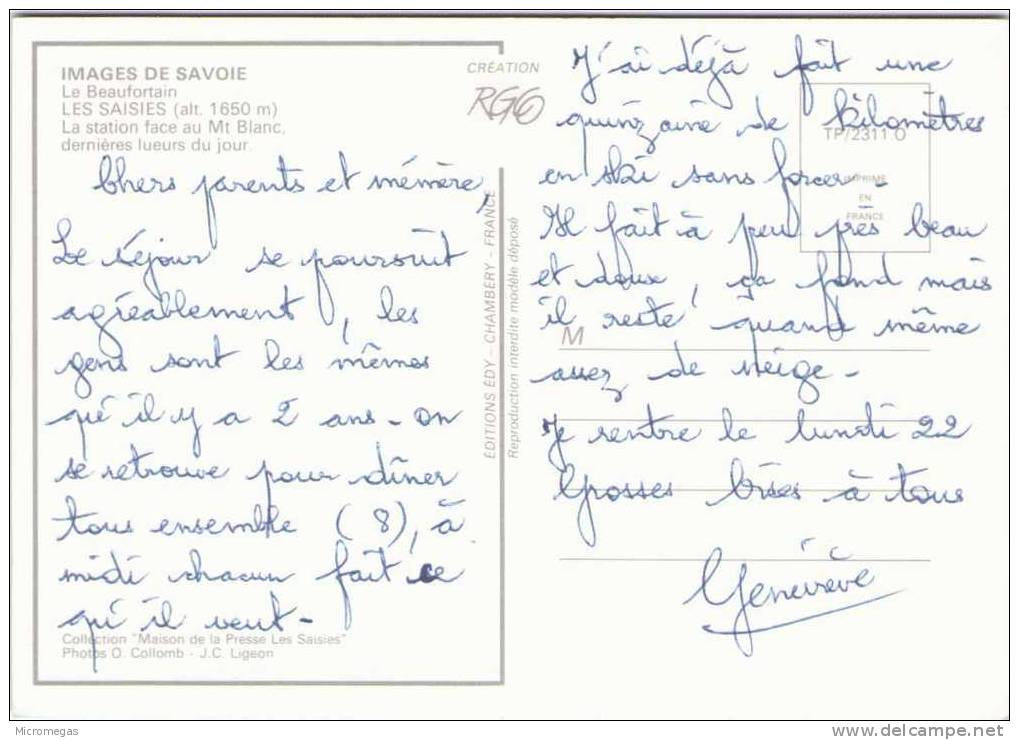 IMAGES DE SAVOIE
Le Beaufortain
LES SAISIES (alt. 1650 m)
La station face au Mt Blanc,
dernières lueurs du jour.
Chers parents et mémère,
Le séjour se poursuit
agréablement, les
gens sont les mêmes
qu'il y a 2 ans - on
se retrouve pour dîner
tous ensemble (8), à
midi chacun fait ce
qu'il veut -
Collection "Maison de la Presse Les Saisies"
Photos O. Collomb - J.C. Ligeon
CRÉATION
RGO
ÉDITIONS ÉDY - CHAMBÉRY - FRANCE
Reproduction interdite modèle déposé
J'ai déjà fait une
quinzaine de kilomètres
en ski sans forcer -
Il fait à peu près beau
et doux, ça fond mais
il reste quand même
assez de neige -
Je rentre le lundi 22
Grosses bises à tous
Geneviève
TP/2311 O
IMPRIMÉ
EN
FRANCE
M
Micromegas
delcampe.net